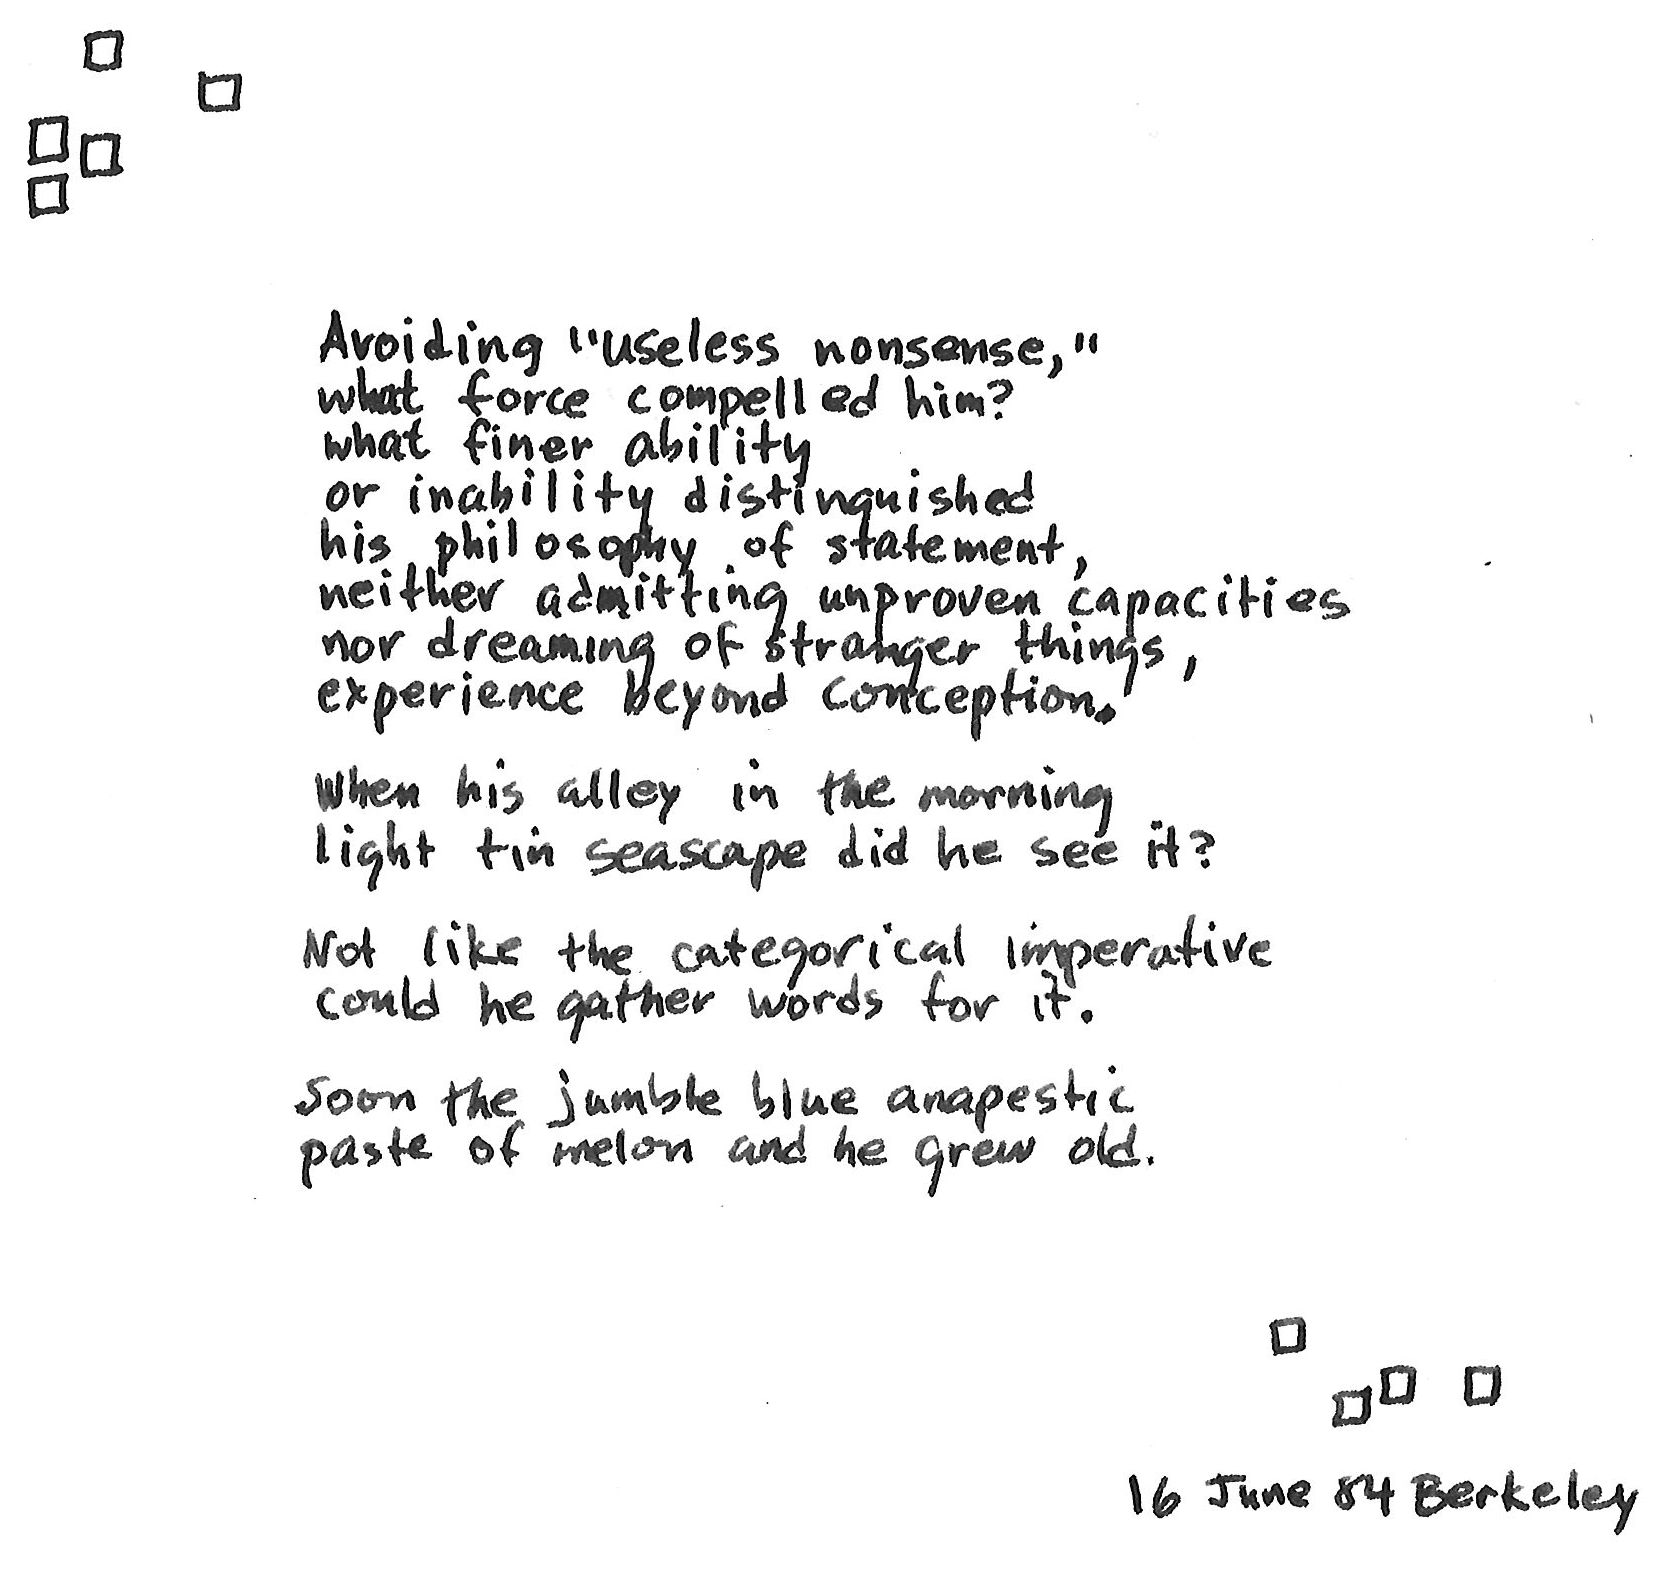 Avoiding "useless nonsense,"
what force compelled him?
what finer ability
or inability distinguished
his philosophy of statement,
neither admitting unproven capacities
nor dreaming of stranger things,
experience beyond conception.
When his alley in the morning
light tin seascape did he see it?
Not like the categorical imperative
could he gather words for it.
Soon the jumble blue anapestic
paste of melon and he grew old.
16 June 84 Berkeley